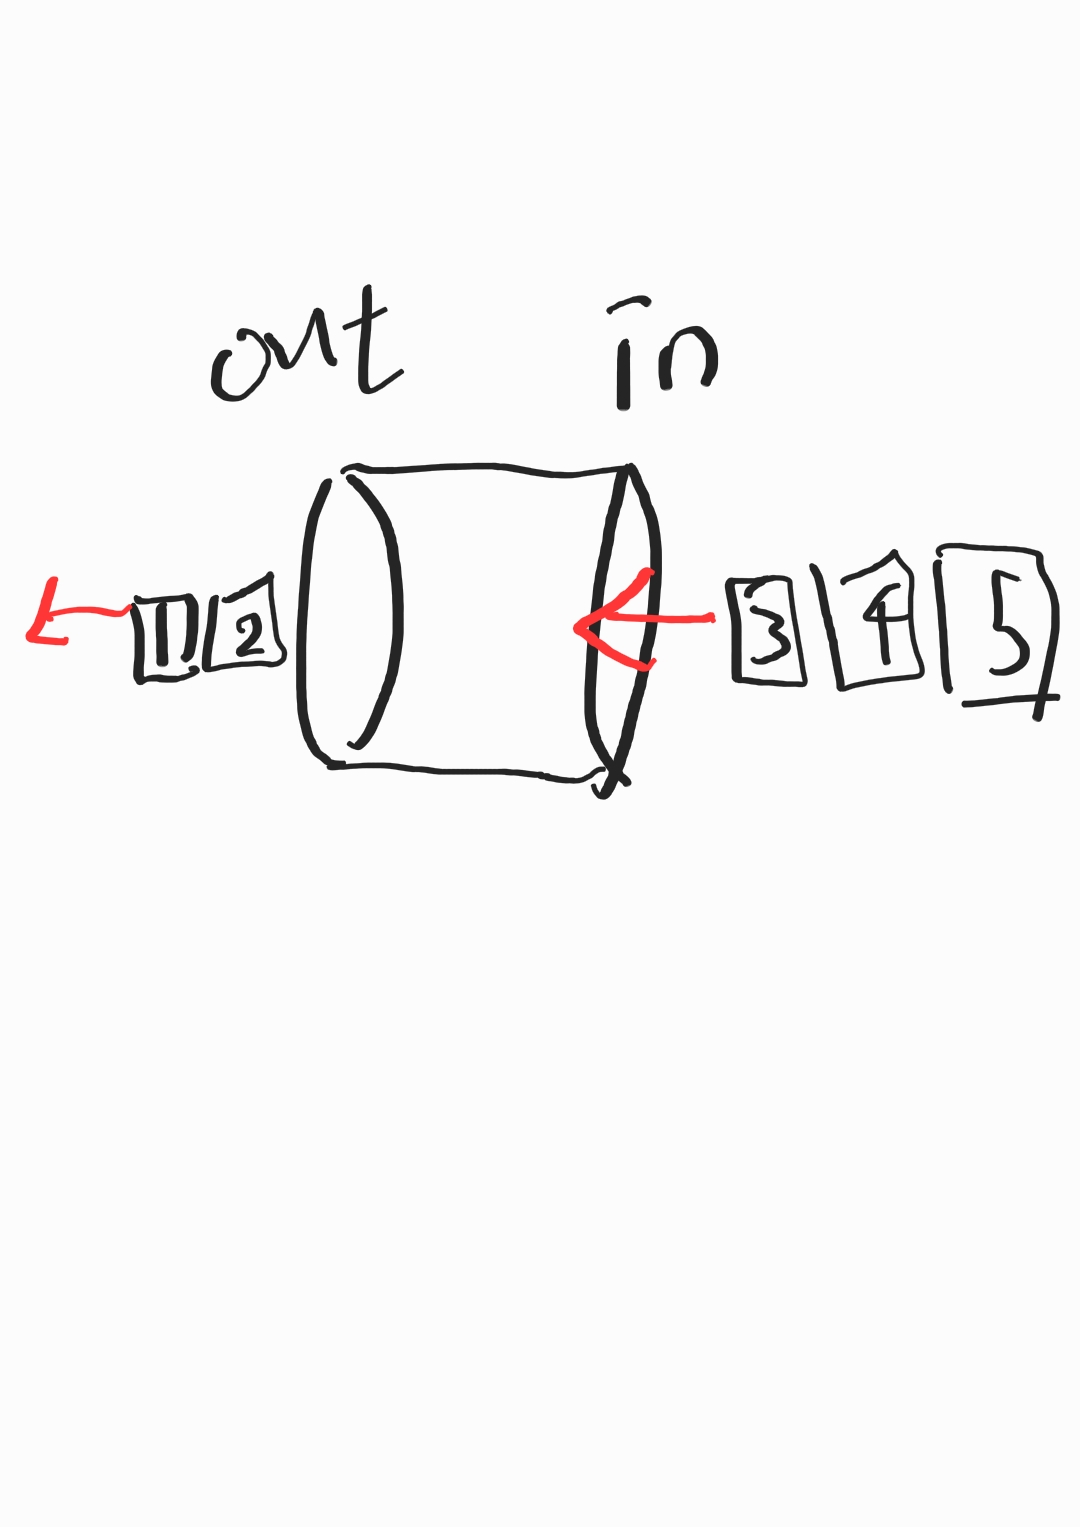 out in
1 2 3 4 5